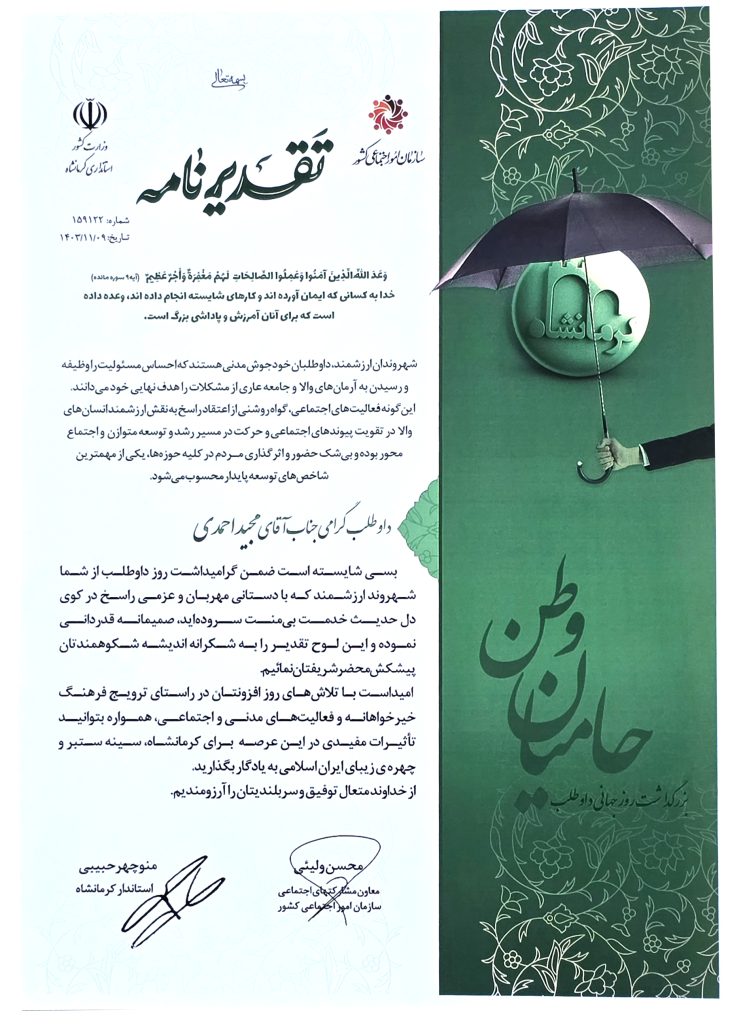 بسمه تعالی
وزارت کشور
استانداری کرمانشاه
سازمان امور اجتماعی کشور
تقدیرنامه
شماره: ۱۵۹۱۲۲
تاریخ: ۱۴۰۳/۱۱/۰۹
وَعَدَ اللهُ الَّذِینَ آمَنُوا وَعَمِلُوا الصَّالِحَاتِ لَهُم مَّغْفِرَةٌ وَأَجْرٌ عَظِیمٌ (آیه ۹ سوره مائده)
خدا به کسانی که ایمان آورده اند و کارهای شایسته انجام داده اند، وعده داده
است که برای آنان آمرزش و پاداشی بزرگ است.
شهروندان ارزشمند، داوطلبان خودجوش مدنی هستند که احساس مسئولیت را وظیفه
و رسیدن به آرمان‌های والا و جامعه عاری از مشکلات را هدف نهایی خود می‌دانند.
این‌گونه فعالیت‌های اجتماعی، گواه روشنی از اعتقاد راسخ به نقش ارزشمند انسان‌های
والا در تقویت پیوندهای اجتماعی و حرکت در مسیر رشد و توسعه متوازن و اجتماع
محور بوده و بی‌شک حضور و اثرگذاری مردم در کلیه حوزه‌ها، یکی از مهمترین
شاخص‌های توسعه پایدار محسوب می‌شود.
داوطلب گرامی جناب آقای مجید احمدی
بسی شایسته است ضمن گرامیداشت روز داوطلب از شما
شهروند ارزشمند که با دستانی مهربان و عزمی راسخ در کوی
دل حدیث خدمت بی‌منت سروده‌اید، صمیمانه قدردانی
نموده و این لوح تقدیر را به شکرانه اندیشه شکوهمندتان
پیشکش محضر شریفتان نمائیم.
امیداست با تلاش‌های روز افزونتان در راستای ترویج فرهنگ
خیرخواهانه و فعالیت‌های مدنی و اجتماعی، همواره بتوانید
تأثیرات مفیدی در این عرصه برای کرمانشاه، سینه ستبر و
چهره‌ی زیبای ایران اسلامی به یادگار بگذارید.
از خداوند متعال توفیق و سربلندیتان را آرزومندیم.
محسن ولیئی
معاون مشارکتهای اجتماعی
سازمان امور اجتماعی کشور
منوچهر حبیبی
استاندار کرمانشاه
کرمانشاه
حامیان وطن
بزرگداشت روز جهانی داوطلب